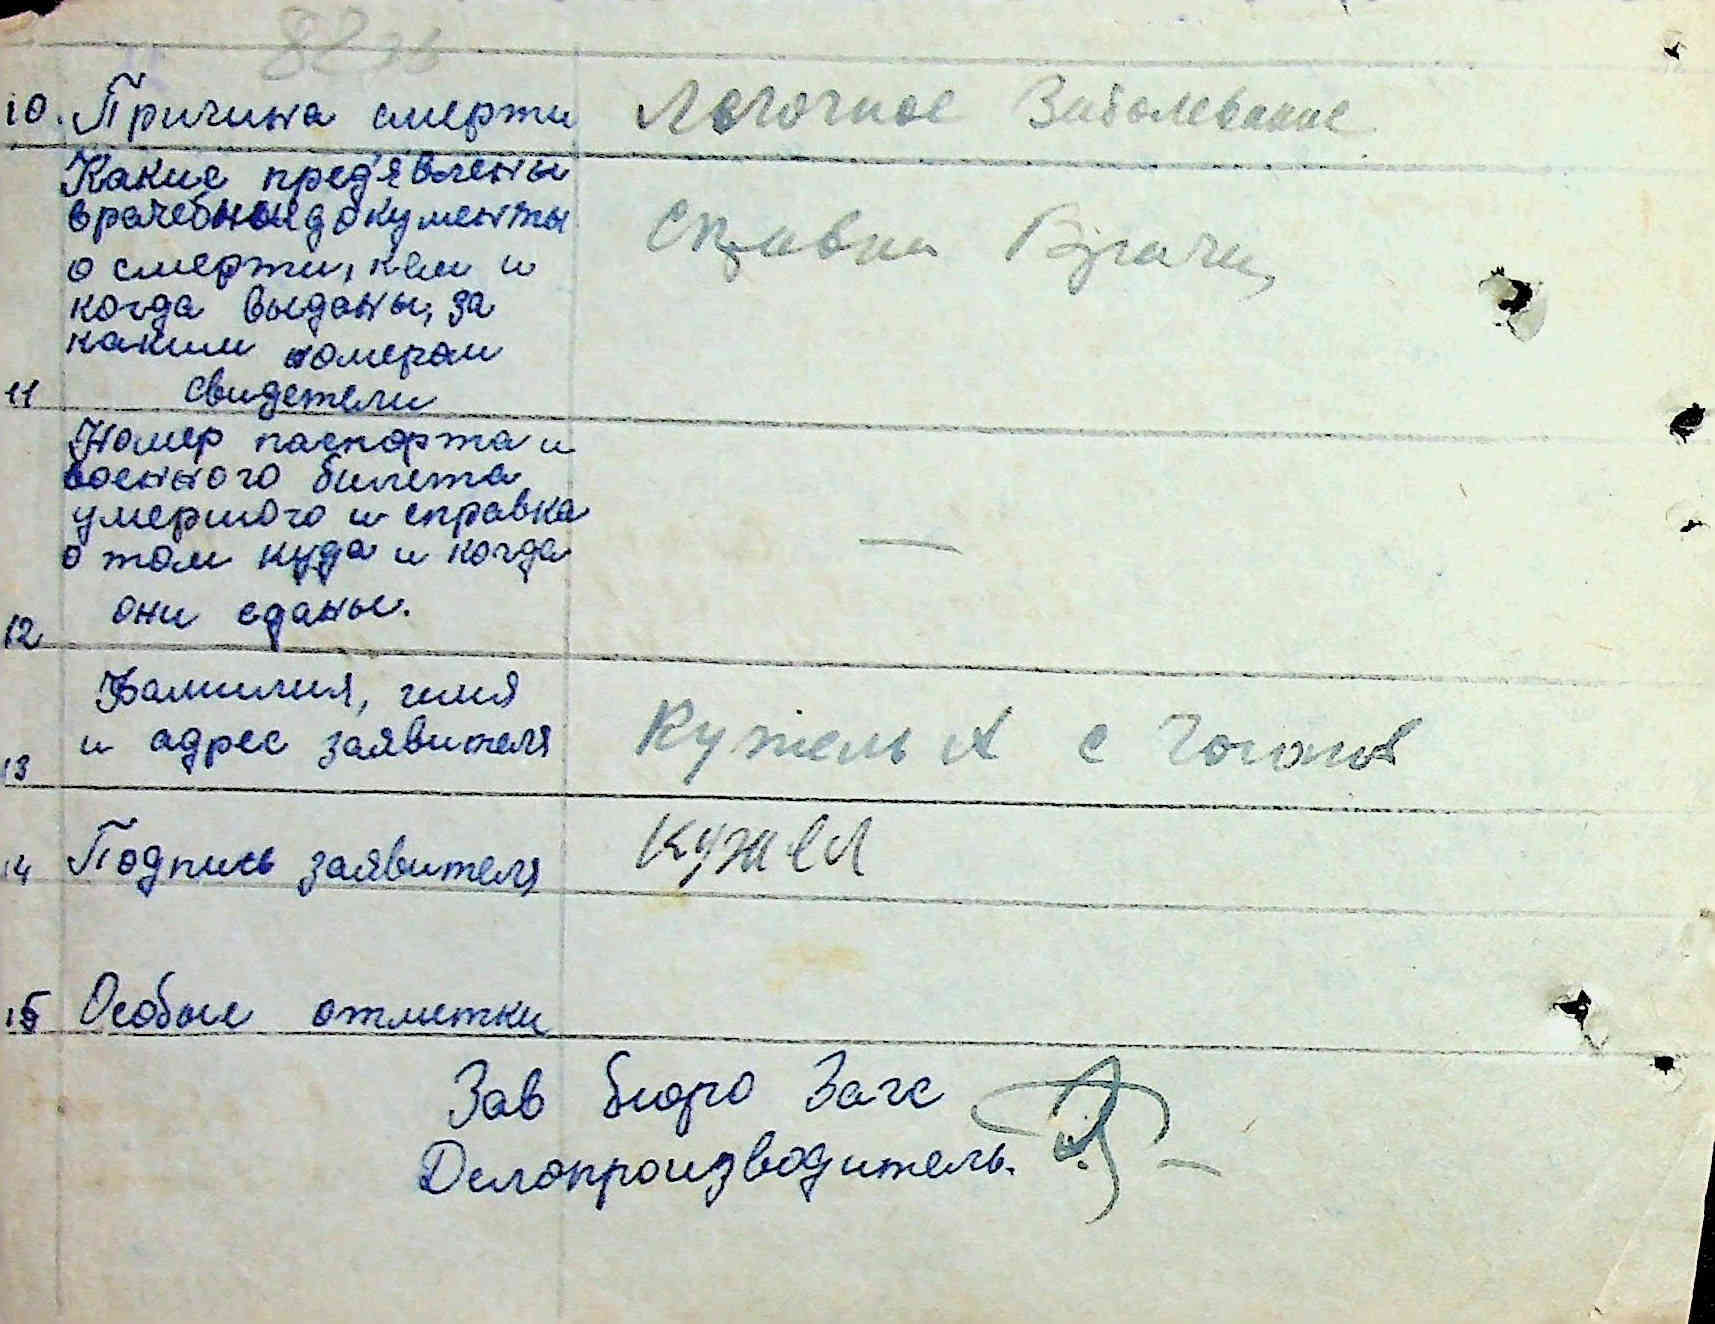 10. Причина смерти Логочное Заболевание
Какие пред'явлены
врачебные документы
о смерти, кем и
когда выданы, за
каким номером
11 свидетели
Справка Врача
Номер паспорта и
военного билета
умершого и справка
о том куда и когда
12 они сданы.
—
Фамилия, имя
13 и адрес заявителя
Кужель А с
14 Подпись заявителя Кужел
15 Особые отметки
Зав бюро Загс
Делопроизводитель.